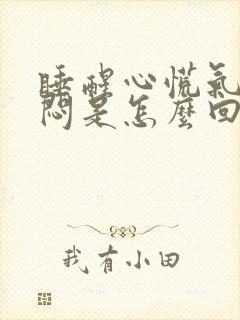 睡醒心慌氣
悶是怎麼回
我有小田